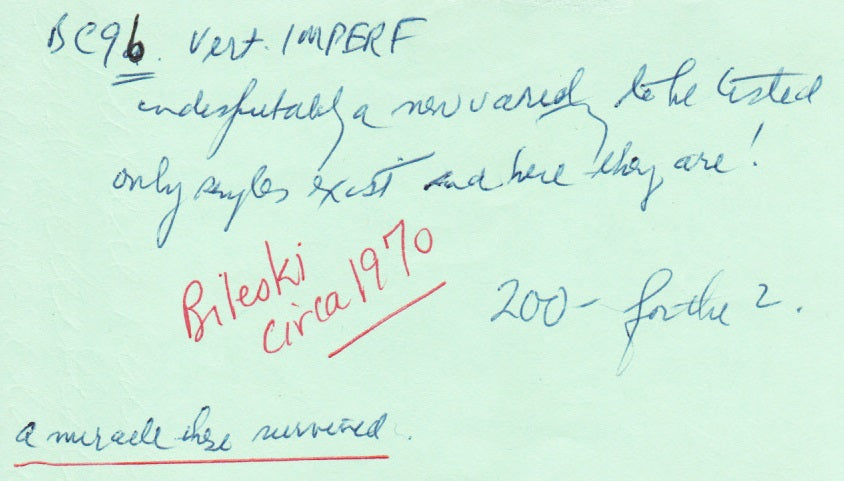 BC9b. Vert. IMPERF
indisputably a new variety to be listed
only singles exist and here they are!
Bileski
circa 1970
200- for the 2.
a miracle these survived.